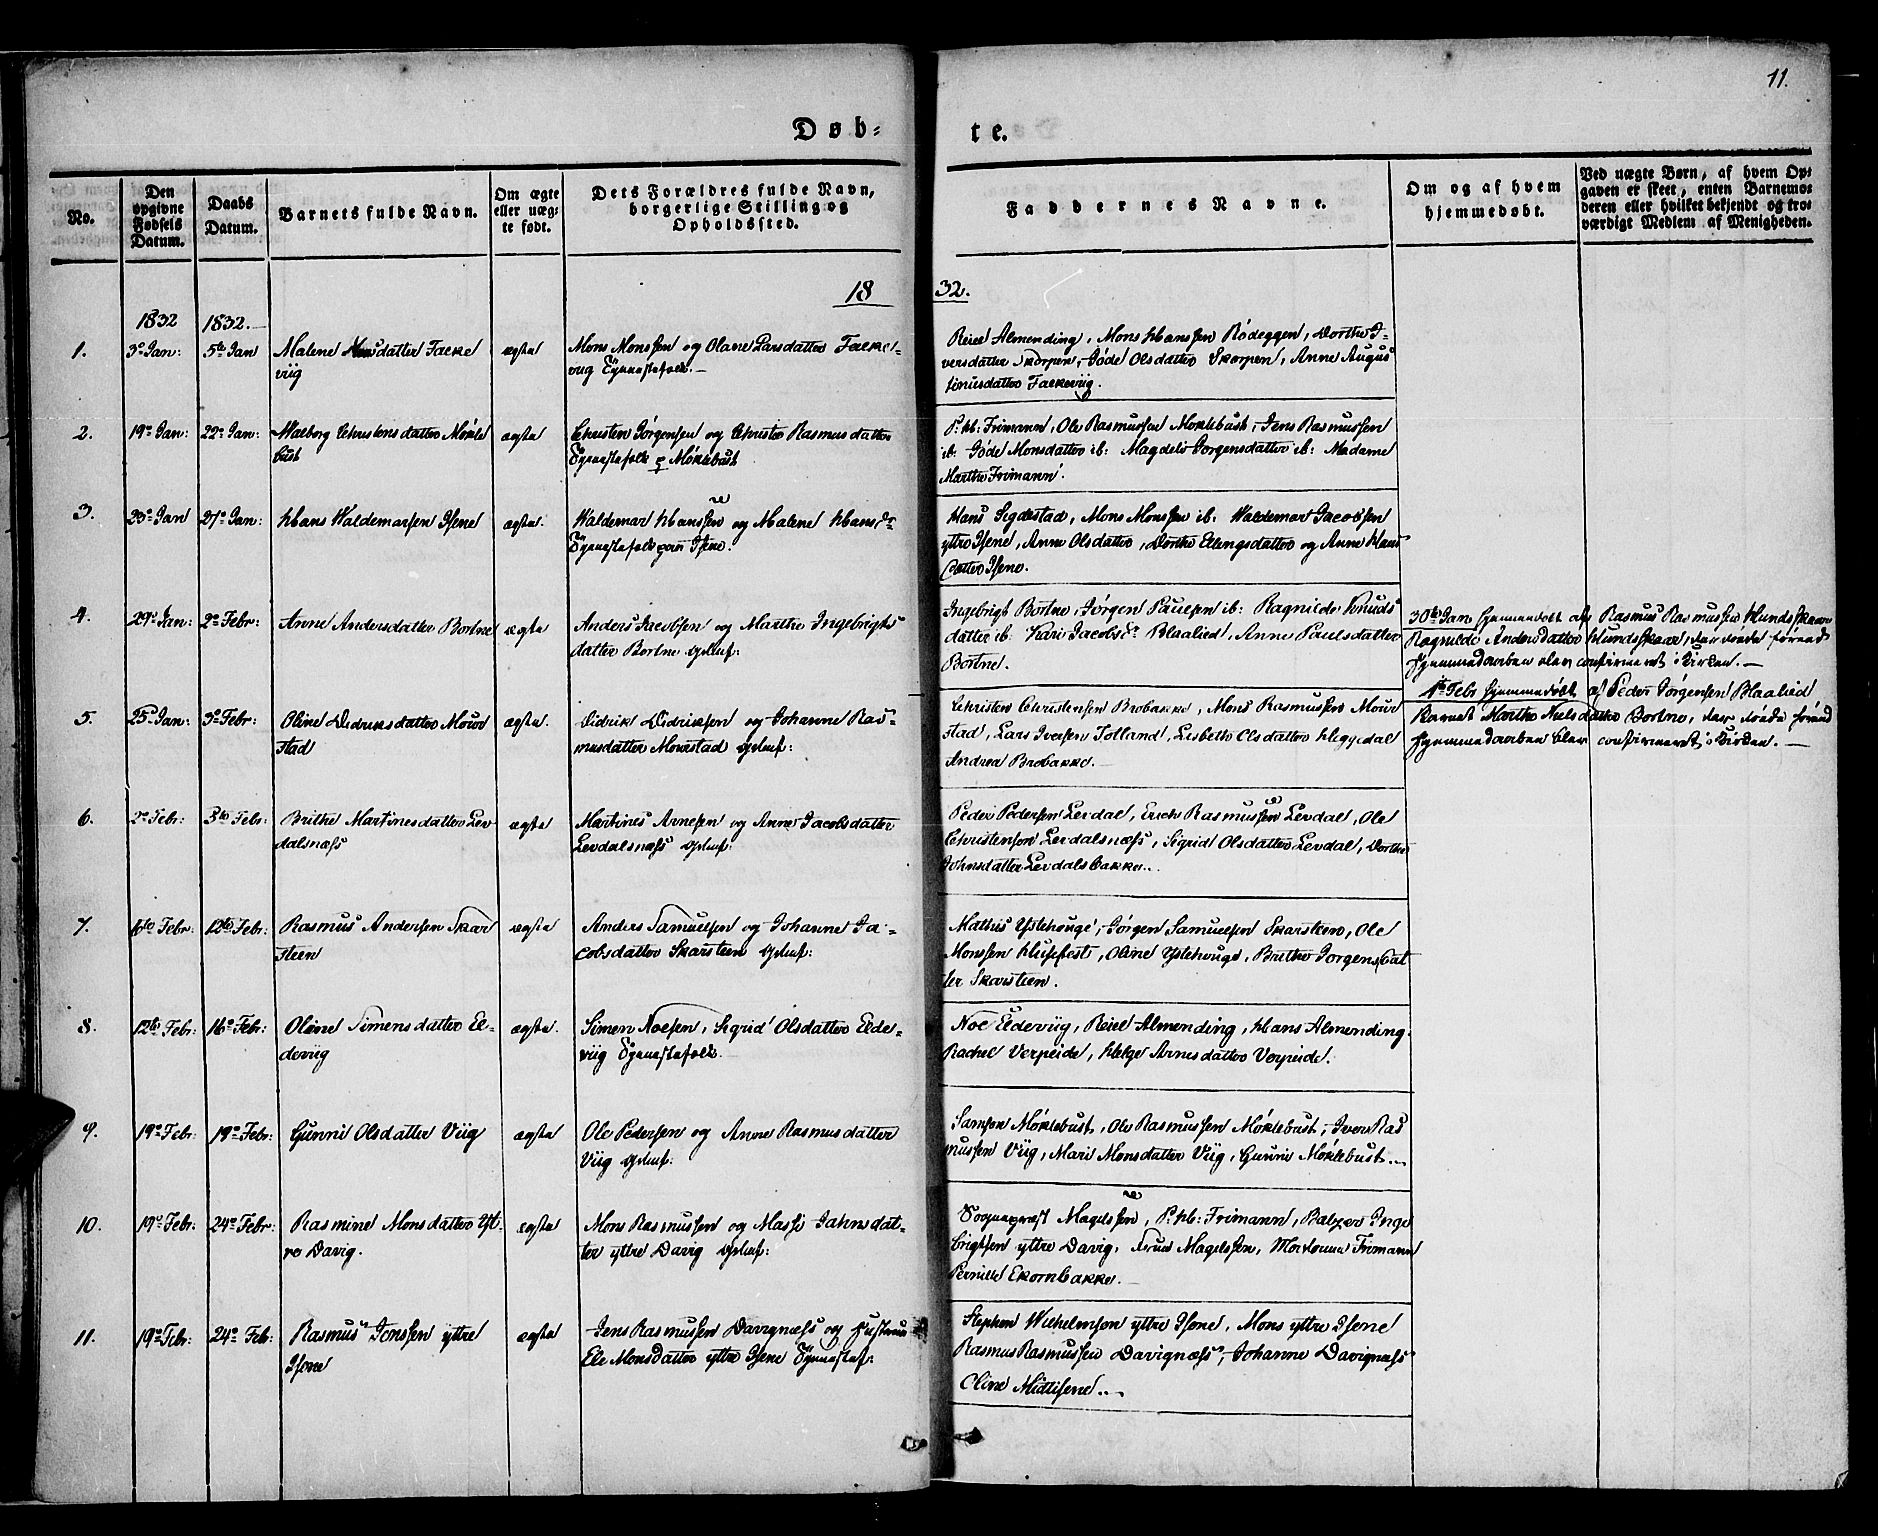 11.
Døb-
te.
No.
Den opgivne Fødsels Datum.
Daabs Datum.
Barnets fulde Navn.
Om ægte eller uægte født.
Dets Forældres fulde Navn, borgerlige Stilling og Opholdssted.
Faddernes Navne.
Om og af hvem hjemmedøbt.
Ved uægte Børn, af hvem Opgaven er skeet, enten Barnemoderen eller hvilket bekjendt og troværdigt Medlem af Menigheden.
18
32.
1832
1832.
1.
3die Jan:
5te Jan
Malene datter Falke
viig
ægte
Mons Monssen og Olane Larsdatter Falke-
viig
Reiel Almending, Mons Hanssen Rødeggen, Dorthe I-
versdatter Skorpen, Gøde Olsdatter Skorpen, Anne Augus
tinusdatter Falkeviig.
2.
19de Jan:
22de Jan:
Malborg Christensdatter Møkle
bust
ægte
Christen Jørgensen og Christie Rasmusdatter
Møklebust
P. Hb: Frimann, Ole Rasmussen Møklebust, Jens Rasmussen
ib: Gøde Monsdatter ib: Magdeli Jørgensdatter ib: Madame
Marthe Frimann.
3.
23de Jan
27de Jan:
Hans Waldemarsen Isene
ægte.
Waldemar Hanssen og Malene Hansdr
Isene.
Hans Segdestad, Mons Monssen ib: Waldemar Jacobsen
yttre Isene, Anne Olsdatter, Dorthe Ellingsdatter og Anne Hans
datter Isene.
4.
29de Jan:
2den Febr:
Anne Andersdatter Bortne
ægte
Anders Jacobsen og Marthe Ingebrigts
datter Bortne
Ingebrigt Bortne, Jørgen Paulsen ib: Ragnilde Knuds
datter ib: Kari Jacobsdr Blaalied, Anne Paulsdatter
Bortne.
30te Jan hjemmedøbt af Rasmus Rasmussen Hundskaar
Ragnilde Andersdatter Hundskaar, der forend
hjemmedaaben blev confirmeret i Kirken.
5.
25de Jan:
3die Febr:
Oline Didriksdatter Mour
stad
ægte.
Didrik Didriksen og Johanne Ras-
musdatter Mourstad
Christen Christensen Brobakke, Mons Rasmussen Mour
stad, Lars Iversen Tolland, Lisbeth Olsdatter Heggedal
Andrea Brobakke.
1ste Febr hjemmedøbt af Peder Jørgensen Blaalied
Barnet Marthe Nielsdatter Bortne, der forend
hjemmedaaben blev confirmeret i Kirken.
6.
2den Febr:
5te Febr:
Brithe Martinesdatter Lev
dalsnæss
ægte
Martines Arnesen og Anne Jacobsdatter
Levdalsnæss
Peder Pedersen Levdal, Erich Rasmussen Levdal, Ole
Christensen Levdalsnæss, Sigrid Olsdatter Levdal, Dorthe
Johnsdatter Levdalsbakke.
7.
6te Febr:
12te Febr:
Rasmus Andersen Skar
steen
ægte
Anders Samuelsen og Johanne Ja-
cobsdatter Skarsteen
Mathis Ystehouge, Jørgen Samuelsen Skarsteen, Ole
Monssen Huffest, Oline Ystehouge, Brithe Jørgensdat
ter Skarsteen.
8.
12te Febr:
16de Febr:
Oline Simensdatter El-
deviig
ægte.
Simen Noesen, Sigrid Olsdatter Elde-
viig
Noe Eldeviig, Reiel Almending, Hans Almending
Rachel Verpeide, Helge Arnesdatter Verpeide.
9.
19de Febr:
19de Febr:
Gunni Olsdatter Viig
ægte
Ole Pedersen og Anne Rasmusdatter
Viig
Samson Møklebust, Ole Rasmussen Møklebust, Iver Ras
mussen Viig, Mari Monsdatter Viig, Gunni Møklebust.
10.
19de Febr:
24de Febr:
Rasmine Monsdatter Yt-
re Davig.
ægte
Mons Rasmussen og Massi Jahnsdat-
ter yttre Davig
Sognepræst Magelssen, P. Hb: Frimann, Balzer Inge
brigtsen yttre Davig, Frue Magelssen, Madame Frimann
Pernille Ekornbakke.
11.
19de Febr:
24de Feb:
Rasmus Jenssen yttre
Isene
ægte
Jens Rasmussen Davignæss og
Ele Monsdatter yttre Isene
Stephen Wilhelmsen yttre Isene, Mons yttre Isene
Rasmus Rasmussen Davignæss, Johanne Davignæss
Oline Midtisene.